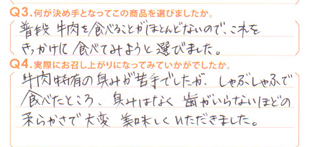 Q3.何が決め手となってこの商品を選びましたか。
普段 牛肉を食べることがほとんどないので、これを
きっかけに食べてみようと選びました。
Q4.実際にお召し上がりになってみていかがでしたか。
牛肉特有の臭みが苦手でしたが、しゃぶしゃぶで
食べたところ、臭みはなく 歯がいらないほどの
柔らかさで大変 美味しくいただきました。